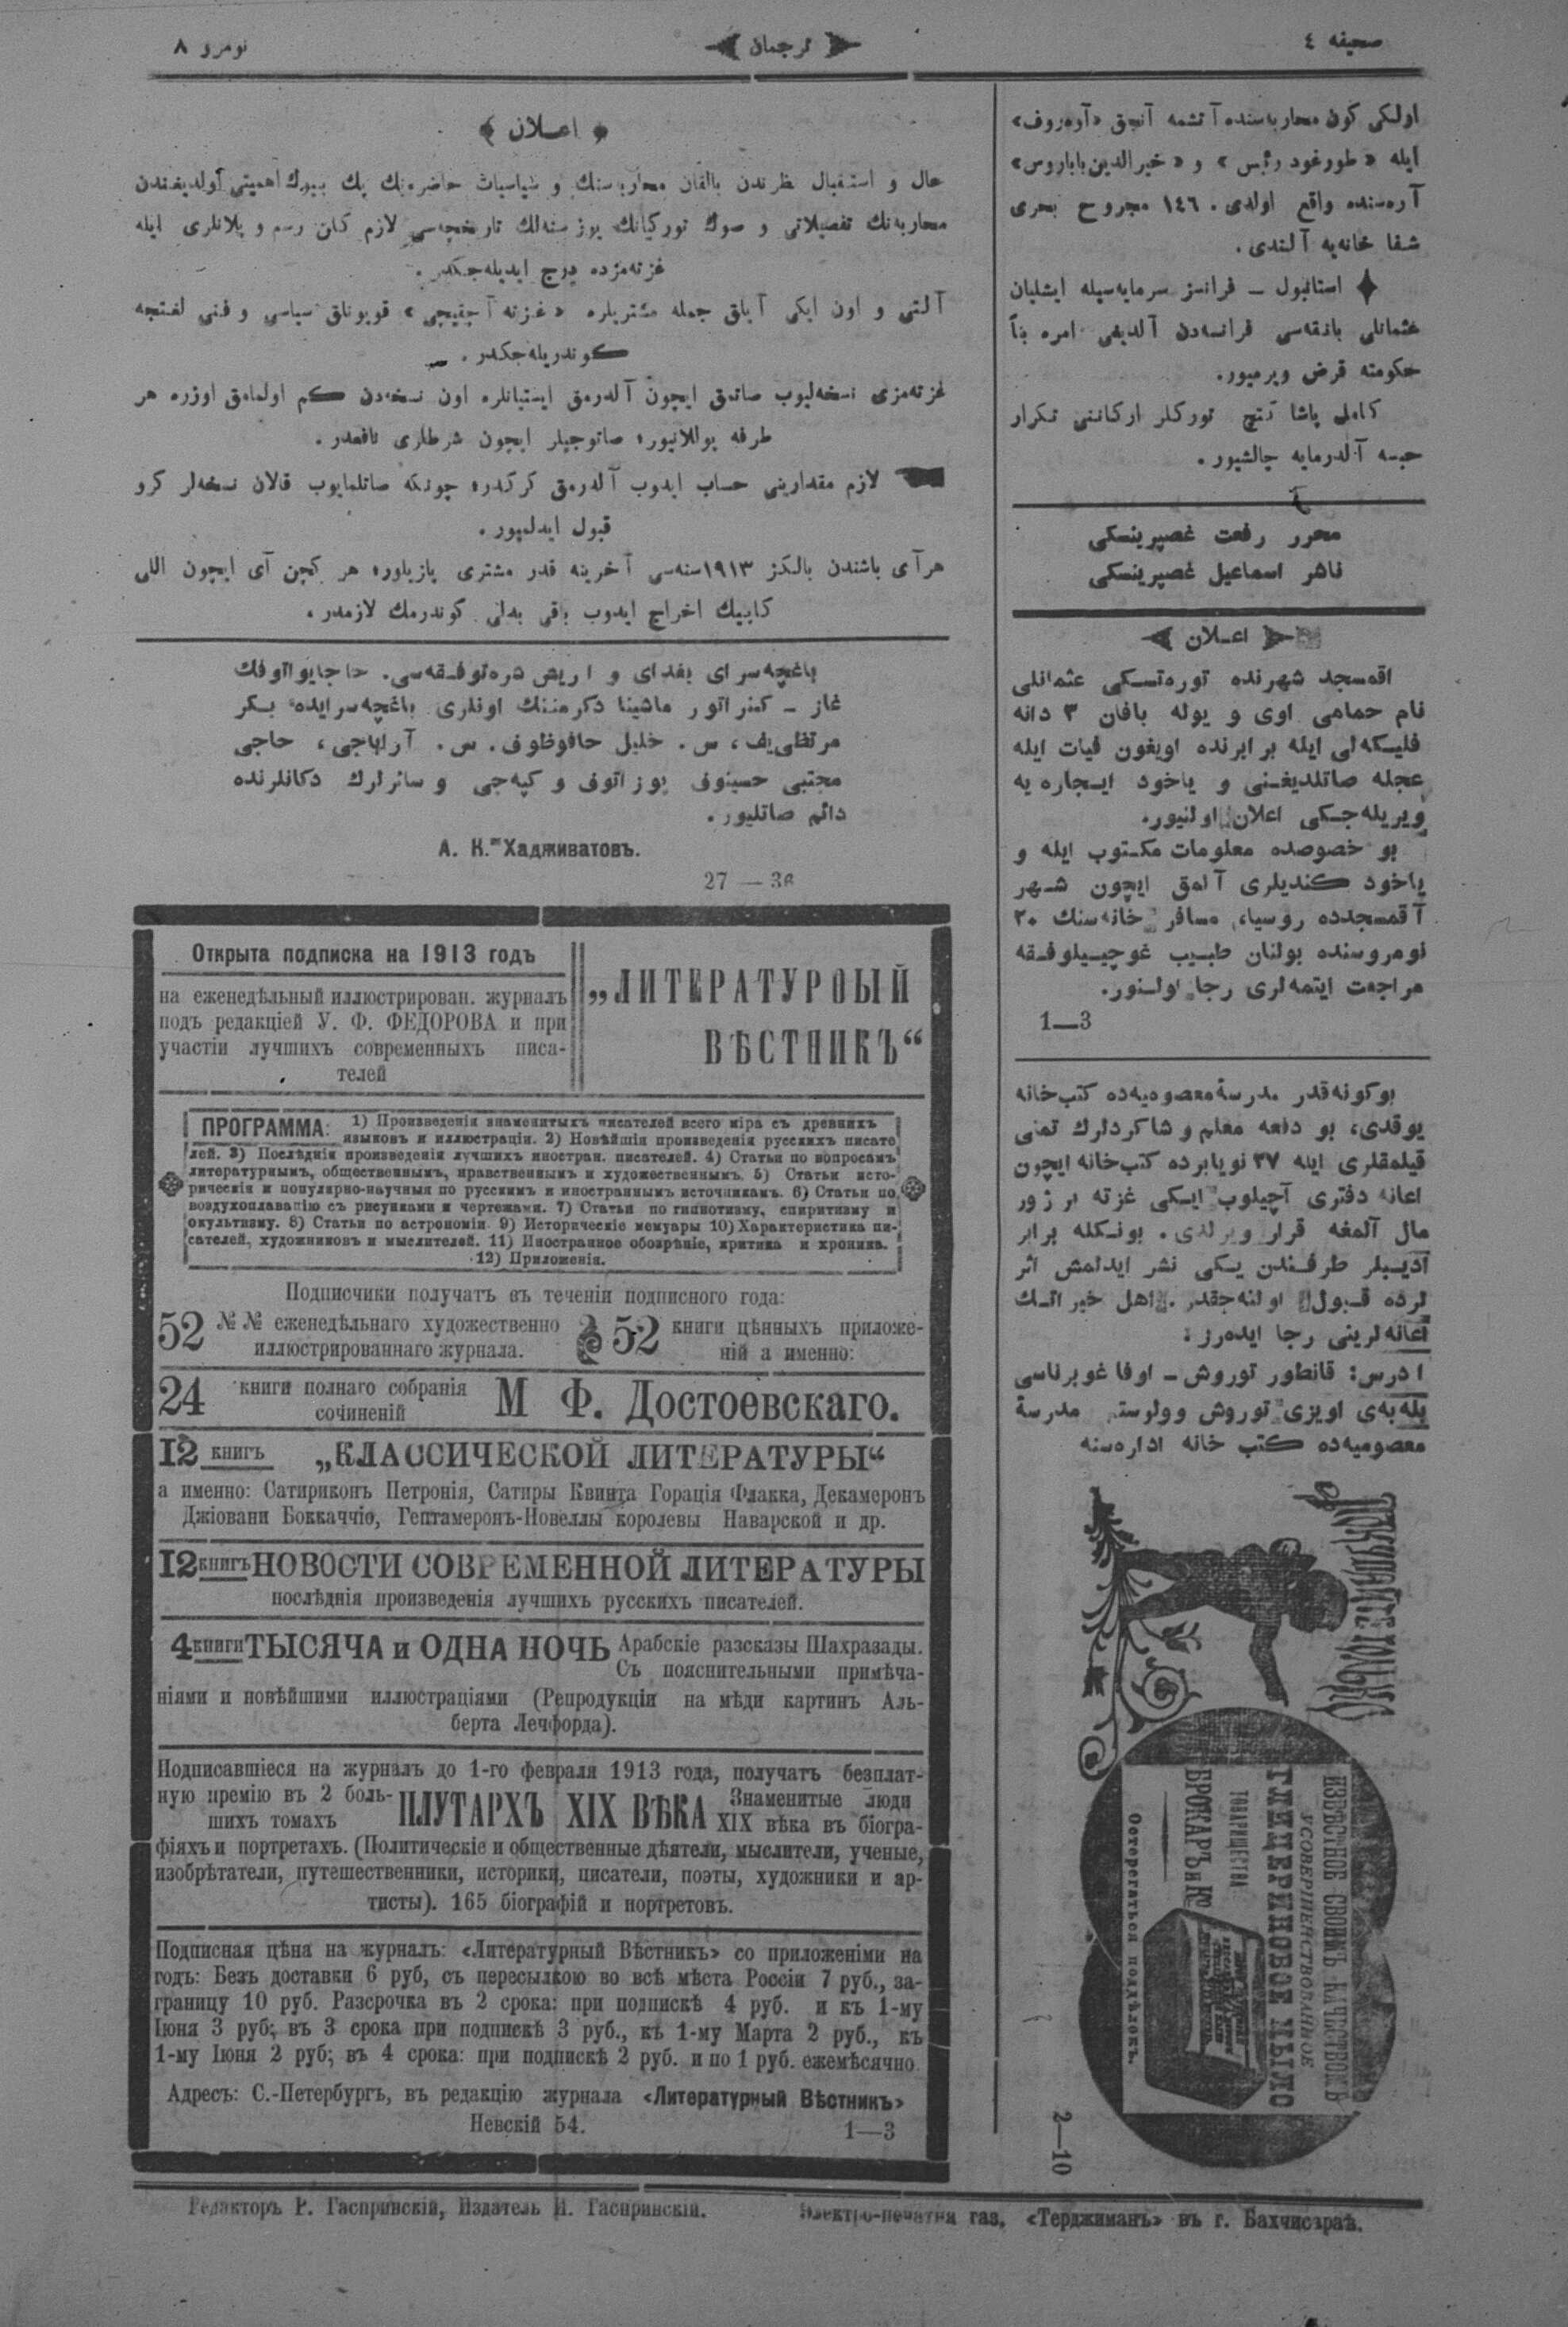 صحيفه ٤
ترجمان
نومرو ٨
اولكی كون محاربه‌سنده آتشمه آنجق «آوه‌روف»
ايله «طورغود رئيس» و «خيرالدين باباروس»
آره‌سنده واقع اولدی. ١٤٦ مجروح بحری
شفا خانه‌يه آلندی.
استانبول ــ فرانسز سرمايه‌سيله ايشليان
عثمانلی بانقه‌سی فرانسه‌دن آلديغی امره بناً
حكومته قرض ويرميور.
كامل پاشا گنج توركلر اركاننی تكرار
حبسه آلدرمايه چاليشيور.
محرر رفعت غصپرينسكی
ناشر اسماعيل غصپرينسكی
اعلان
اقمسجد شهرنده توره‌تسكی عثمانلی
نام حمامی اوی و يوله باقان ٣ دانه
فليگه‌لی ايله برابرنده اويغون فيات ايله
عجله صاتلديغنی و ياخود ايجاره يه
ويريله‌جكی اعلان اولنيور.
بو خصوصده معلومات مكتوب ايله و
ياخود كنديلری آلمق ايچون شهر
آقمسجدده روسيا، مسافر خانه‌سنك ٢٠
نومروسنده بولنان طبيب غوچيلوفقه
مراجعت ايتمه‌لری رجا اولنور.
1—3
بوكونه قدر مدرسهٔ معصوميه‌ده كتب خانه
يوقدی، بو دفعه معلم و شاكردلرك تمنی
قيلمقلری ايله ٢٧ نويابرده كتب خانه ايچون
اعانه دفتری آچيلوب ايكی غزته بر ژور
مال آلمغه قرار ويرلدی. بونكله برابر
اديبلر طرفندن يكی نشر ايدلمش اثر
لرده قبول اولنه‌جقدر. اهل خيراتك
اعانه‌لرينی رجا ايده‌رز:
ادرس: قانطور توروش ــ اوفا غوبرناسی
بله‌به‌ی اويزی توروش وولوست مدرسهٔ
معصوميه‌ده كتب خانه اداره‌سنه
ПОКУПАЙТЕ ТОЛЬКО
ИЗВѢСТНОЕ СВОИМЪ КАЧЕСТВОМЪ
УСОВЕРШЕНСТВОВАННОЕ
ГЛИЦЕРИНОВОЕ МЫЛО
ТОВАРИЩЕСТВА
БРОКАРЪ и Ко
Остерегаться поддѣлокъ.
2—10
اعلان
حال و استقبال نظرندن بالقان محاربه‌سنك و سياسيات حاضره‌نك پك بيوك اهميتی اولديغندن
محاربه‌نك تفصيلاتی و صوك توركيانك يوز سنه‌لك تاريخچه‌سی لازم كلن رسم و پلانلری ايله
غزته‌مزده درج ايديله‌جكدر.
آلتی و اون ايكی آيلق جمله مشتريلره «غزته آچقيچی» قويوناق سياسی و فنی لغتچه
كوندريله‌جكدر.
غزته‌مزی نسخه‌ليوب صاتمق ايچون آلدرمق ايستيانلره اون نسخه‌دن كم اولمامق اوزره هر
طرفه يوللانيور؛ صاتوجيلر ايچون شرطلری نافعدر.
لازم مقدارينی حساب ايدوب آلدرمق كركدر؛ چونكه صاتلمايوب قالان نسخه‌لر كرو
قبول ايدلميور.
هرآی باشندن يالكز ١٩١٣ سنه‌سی آخرينه قدر مشتری يازيلور؛ هر كچن آی ايچون اللی
كاپيك اخراج ايدوب باقی بدلی كوندرمك لازمدر.
باغچه‌سرای بغدای و اريش دره‌توفقه‌سی. حاجايواتوفك
غاز ــ گنراتور ماشينا دكرمننك اونلری باغچه‌سرايده بكر
مرتظی‌يف، س. خليل حافوظوف. س. آراباجی، حاجی
مجتبی حسينوف بوزاتوف و كپه‌جی و سائرلرك دكانلرنده
دائم صاتليور.
А. К. Хадживатовъ.
27 — 36
Открыта подписка на 1913 годъ
на еженедѣльный иллюстрирован. журналъ
подъ редакціей У. Ф. ФЕДОРОВА и при
участіи лучшихъ современныхъ писа-
телей
„ЛИТЕРАТУРНЫЙ
ВѢСТНИКЪ“
ПРОГРАММА: 1) Произведенія знаменитыхъ писателей всего міра съ древнихъ
языковъ и иллюстраціи. 2) Новѣйшія произведенія русскихъ писате
лей. 3) Послѣднія произведенія лучшихъ иностран. писателей. 4) Статьи по вопросамъ
литературнымъ, общественнымъ, нравственнымъ и художественнымъ. 5) Статьи исто-
рическія и популярно-научныя по русскимъ и иностраннымъ источникамъ. 6) Статьи по
воздухоплаванію съ рисунками и чертежами. 7) Статьи по гипнотизму, спиритизму и
окультизму. 8) Статьи по астрономіи 9) Историческіе мемуары 10) Характеристика пи-
сателей, художниковъ и мыслителей. 11) Иностранное обозрѣніе, критика и хроника.
12) Приложенія.
Подписчики получатъ въ теченіи подписного года:
52 №№ еженедѣльнаго художественно
иллюстрированнаго журнала.
52 книги цѣнныхъ приложе-
ній а именно:
24 книги полнаго собранія
сочиненій
М Ф. Достоевскаго.
12 книгъ „КЛАССИЧЕСКОЙ ЛИТЕРАТУРЫ“
а именно: Сатириконъ Петронія, Сатиры Квинта Горація Флакка, Декамеронъ
Джіовани Боккаччіо, Гептамеронъ-Новеллы королевы Наварской и др.
12 книгъ НОВОСТИ СОВРЕМЕННОЙ ЛИТЕРАТУРЫ
послѣднія произведенія лучшихъ русскихъ писателей.
4 книги ТЫСЯЧА и ОДНА НОЧЬ Арабскіе разсказы Шахразады.
Съ пояснительными примѣча-
ніями и новѣйшими иллюстраціями (Репродукціи на мѣди картинъ Аль-
берта Лечфорда).
Подписавшіеся на журналъ до 1-го февраля 1913 года, получатъ безплат-
ную премію въ 2 боль-
шихъ томахъ
ПЛУТАРХЪ XIX ВѢКА
Знаменитые люди
XIX вѣка въ біогра-
фіяхъ и портретахъ. (Политическіе и общественные дѣятели, мыслители, ученые,
изобрѣтатели, путешественники, историки, писатели, поэты, художники и ар-
тисты). 165 біографій и портретовъ.
Подписная цѣна на журналъ: «Литературный Вѣстникъ» со приложеніми на
годъ: Безъ доставки 6 руб, съ пересылкою во всѣ мѣста Россіи 7 руб., за-
границу 10 руб. Разсрочка въ 2 срока: при подпискѣ 4 руб. и къ 1-му
Іюня 3 руб; въ 3 срока при подпискѣ 3 руб., къ 1-му Марта 2 руб., къ
1-му Іюня 2 руб; въ 4 срока: при подпискѣ 2 руб. и по 1 руб. ежемѣсячно.
Адресъ: С.-Петербургъ, въ редакцію журнала «Литературный Вѣстникъ»
Невскій 54.
1—3
Редакторъ Р. Гаспринскій, Издатель И. Гаспринскій.
Электро-печатня газ. «Терджиманъ» въ г. Бахчисараѣ.